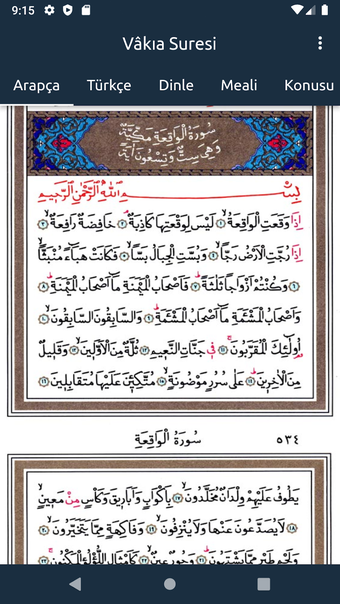 9:15
Vâkıa Suresi
Arapça Türkçe Dinle Meali Konusu
سُورَةُ الْوَاقِعَةِ مَكِّيَّةٌ
وَهِيَ سِتٌّ وَتِسْعُونَ اٰيَةً
بِسْمِ اللّٰهِ الرَّحْمٰنِ الرَّحِيمِ
اِذَا وَقَعَتِ الْوَاقِعَةُۙ ﴿١﴾ لَيْسَ لِوَقْعَتِهَا كَاذِبَةٌۢ ﴿٢﴾ خَافِضَةٌ رَافِعَةٌۙ ﴿٣﴾
اِذَا رُجَّتِ الْاَرْضُ رَجًّاۙ ﴿٤﴾ وَبُسَّتِ الْجِبَالُ بَسًّاۙ ﴿٥﴾ فَكَانَتْ هَبَٓاءً مُنْبَثًّاۙ
﴿٦﴾ وَكُنْتُمْ اَزْوَاجًا ثَلٰثَةًۜ ﴿٧﴾ فَاَصْحَابُ الْمَيْمَنَةِ مَٓا اَصْحَابُ الْمَيْمَنَةِۜ ﴿٨﴾
وَاَصْحَابُ الْمَشْـَٔمَةِ مَٓا اَصْحَابُ الْمَشْـَٔمَةِۜ ﴿٩﴾ وَالسَّابِقُونَ السَّابِقُونَۙ ﴿١٠﴾
اُو۬لٰٓئِكَ الْمُقَرَّبُونَۚ ﴿١١﴾ فِي جَنَّاتِ النَّعِيمِ ﴿١٢﴾ ثُلَّةٌ مِنَ الْاَوَّلِينَۙ ﴿١٣﴾ وَقَلِيلٌ
مِنَ الْاٰخِرِينَۜ ﴿١٤﴾ عَلٰى سُرُرٍ مَوْضُونَةٍۙ ﴿١٥﴾ مُتَّكِـ۪ٔينَ عَلَيْهَا مُتَقَابِلِينَ ﴿١٦﴾
سُورَةُ الْوَاقِعَةِ ٥٣٤
يَطُوفُ عَلَيْهِمْ وِلْدَانٌ مُخَلَّدُونَۙ ﴿١٧﴾ بِاَكْوَابٍ وَاَبَارِيقَ وَكَأْسٍ مِنْ مَعِينٍۙ
﴿١٨﴾ لَا يُصَدَّعُونَ عَنْهَا وَلَا يُنْزِفُونَۙ ﴿١٩﴾ وَفَاكِهَةٍ مِمَّا يَتَخَيَّرُونَۙ ﴿٢٠﴾
وَلَحْمِ طَيْرٍ مِمَّا يَشْتَهُونَۜ ﴿٢١﴾ وَحُورٌ عِينٌۙ ﴿٢٢﴾ كَاَمْثَالِ اللُّؤْلُؤِ الْمَكْنُونِۚ ﴿٢٣﴾